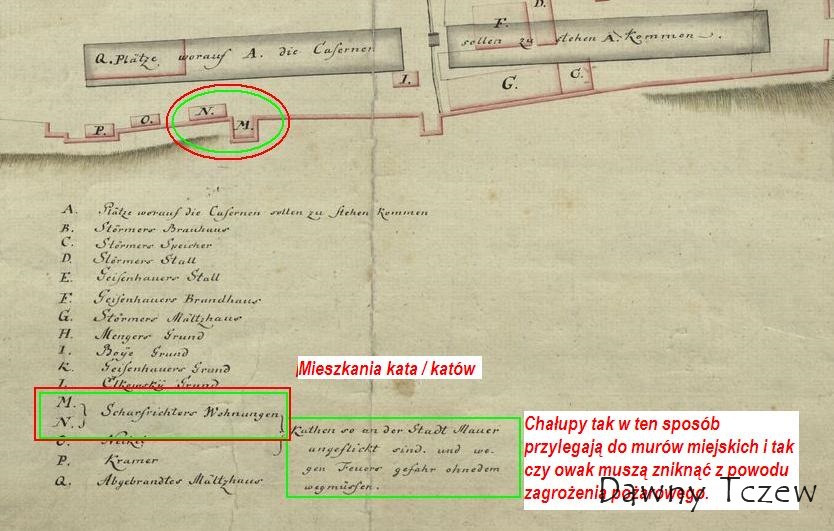 D.
F.
Q. Plätze worauf A. die Casernen
sollen zu stehen A. Kommen.
I.
G.
C.
P.
O.
N.
M.
A. Plätze worauf die Casernen sollen zu stehen kommen
B. Störmers Brauhaus
C. Störmers Speicher
D. Störmers Stall
E. Geisenhauers Stall
F. Geisenhauers Brandhaus
G. Störmers Mältzhaus
H. Mengers Grund
I. Boÿe Grund
K. Geisenhauers Grund
L. Grund
Mieszkania kata / katów
M.
N. } Scharfrichters Wohnungen
O.
P. Kramer
Q. Abgebrandtes Mältzhaus
Kathen so an der Stadt Mauer
angeflickt sind. und we.
gen Feuers gefahr ohnedem
wegmüssen.
Chałupy tak w ten sposób
przylegają do murów miejskich i tak
czy owak muszą zniknąć z powodu
zagrożenia pożarowego.
Dawny Tczew